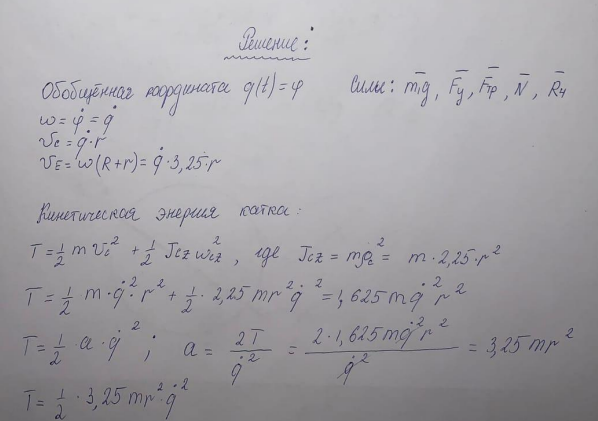 Решение:
Обобщённая координата q(t) = φ Силы: m̅g, F̅у, F̅тр, N̅, R̅ч
ω = φ̇ = q̇
Vc = q̇·r
VE = ω(R+r) = q̇·3,25·r
Кинетическая энергия катка:
T = 1/2 m Vc² + 1/2 Jcz ωcz², где Jcz = mρc² = m·2,25·r²
T = 1/2 · m·q̇²·r² + 1/2 · 2,25 mr² q̇² = 1,625 m q̇² r²
T = 1/2 · a · q̇²; a = 2T/q̇² = 2·1,625 m q̇² r²/q̇² = 3,25 mr²
T = 1/2 · 3,25 mr² · q̇²